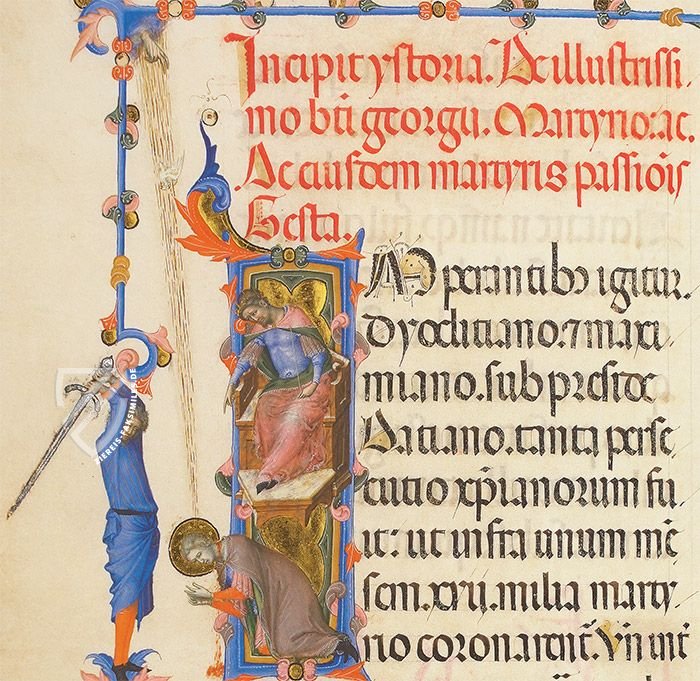 Incipit ystoria. De illustrissi.
mo bti georgii. Martyrio: ac.
Ac eiusdem martyris passiois
Gesta.
Imperantibꝰ igitur.
Dyoclitiano. ⁊ maxi
miano. sub preside
Datiano. tanta perse
cutio xp̄ianorum fu
it: ut infra unum mē
sem. xvii. milia marty.
rio coronarent᷑. Vn̄ int̄
ZIEREIS-FAKSIMILES.DE